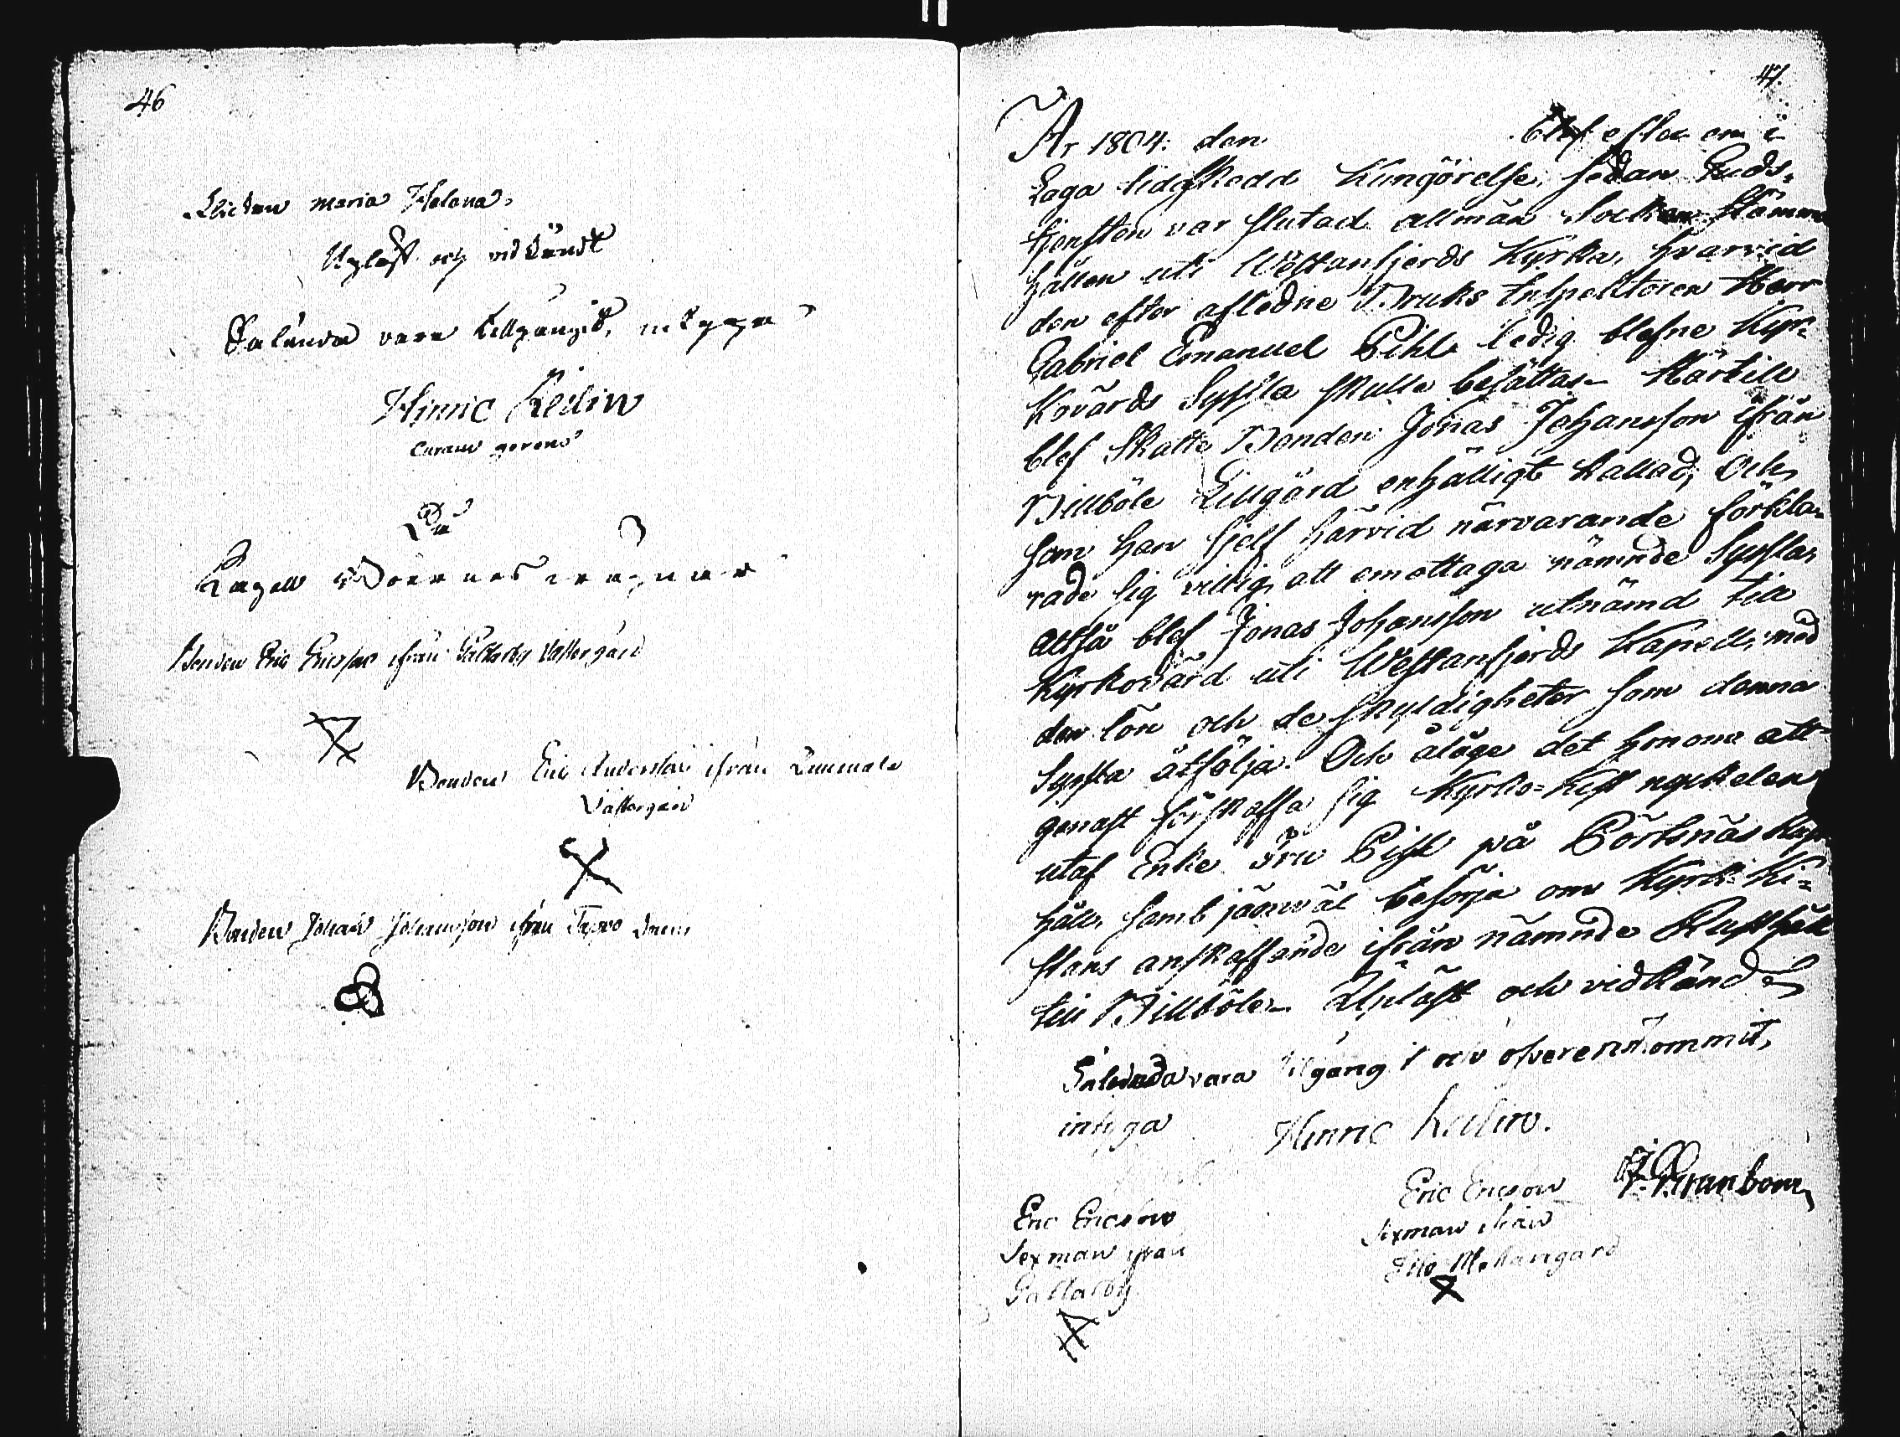 46
Maria Helena,
Upläst och vidkändt
Sålunda vara tillgångit, intyga
Hinric Keilin
curam gerens
På
Kapell Boernes wägnar
Bonden Eric Ericsson ifrån Galtarby Västergård
Bonden Eric Andersson ifrån Lammala
Västergård
Bonden Johan Johansson ifrån Tappo
47.
År 1804: den blef efter en i
Laga tid skedd Kungörelse, sedan Guds-
tjensten var slutad allmän Sockne Stämma
hållen uti Westanfjerds Kyrka, hvarvid
den efter afledne Bruks Inspektoren Herr
Gabriel Emanuel Pihl ledig blefne Kyr-
kovärds Syssla skulle besättas. Härtill
blef Skatte Bonden Jonas Johansson ifrån
Billböle Lillgård enhälligt kallad, Och
som han sjelf härvid närvarande förkla-
rade sig villig att emottaga nämnde Syssla,
altså blef Jonas Johansson utnämd till
Kyrkovärd uti Westanfjerds Kapell, med
den lön och de skyldigheter som denna
Syssla åtfölja. Och ålåge det honom att
genast förskaffa sig Kyrko-Kist nyckelen
utaf Enke Fru Pihl på Pörtsnäs Rust
håll, samt jämwäl besörja om Kyrk-Ki-
stans anskaffande ifrån nämnde Rusthåll
till Billböle. Uplåst och vidkändes
Sålunda vara tilgångit och öfverenskommit,
intyga Hinric Keilin.
Eric Ericsson
Sexman ifrån
Galtarby
Eric Ericsson
Sexman ifrån
Mellangård